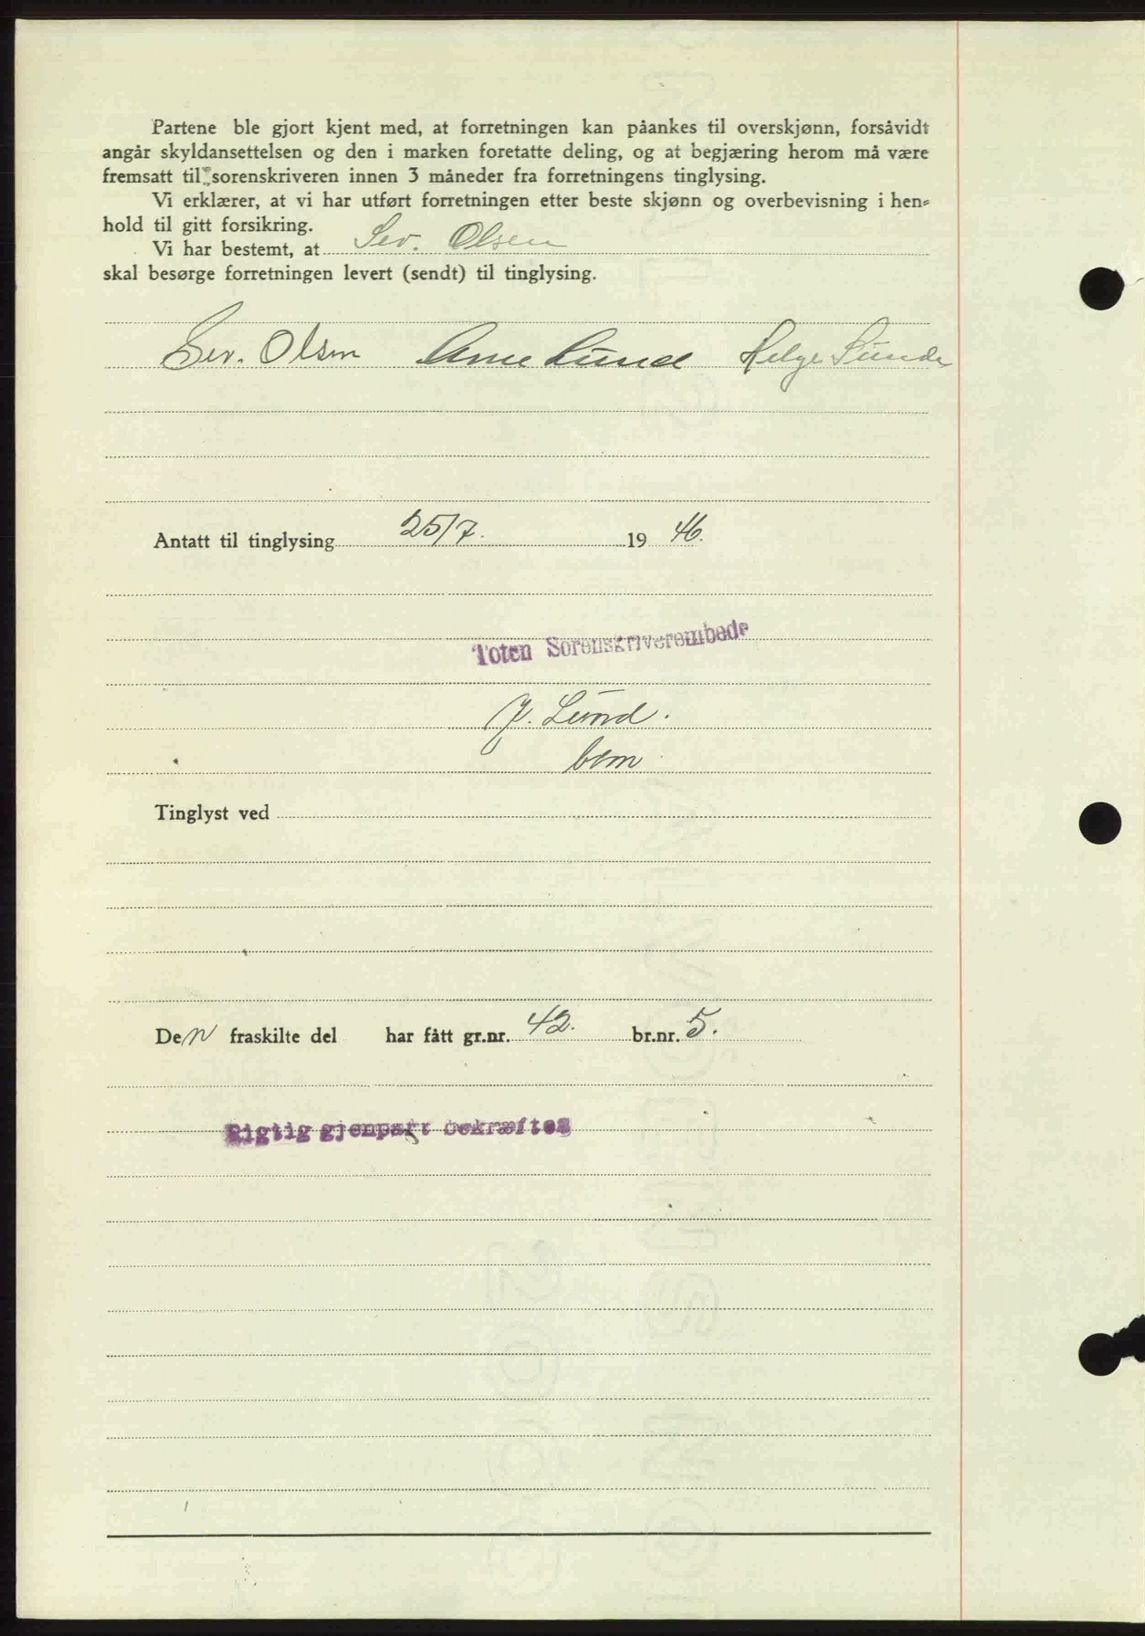 Partene ble gjort kjent med, at forretningen kan påankes til overskjønn, forsåvidt
angår skyldansettelsen og den i marken foretatte deling, og at begjæring herom må være
fremsatt til sorenskriveren innen 3 måneder fra forretningens tinglysing.
Vi erklærer, at vi har utført forretningen etter beste skjønn og overbevisning i hen-
hold til gitt forsikring.
Vi har bestemt, at Sev. Olsen
skal besørge forretningen levert (sendt) til tinglysing.
Sev. Olsen Arne Lund Helge Sunde
Antatt til tinglysing 25/7. 19 46.
Toten Sorenskriverembede
J. Lund.
bem
Tinglyst ved
Den fraskilte del har fått gr.nr. 42. br.nr. 5.
Rigtig gjenpart bekræftes